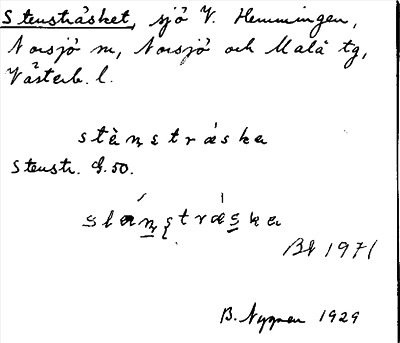 Stensträsket, sjö V. Hemmingen,
Norsjö sn, Norsjö och Malå tg,
Västerb. l.
stènstráska
Stenstr. G.50.
slánstráska
BE 1971
B. Nygren 1929